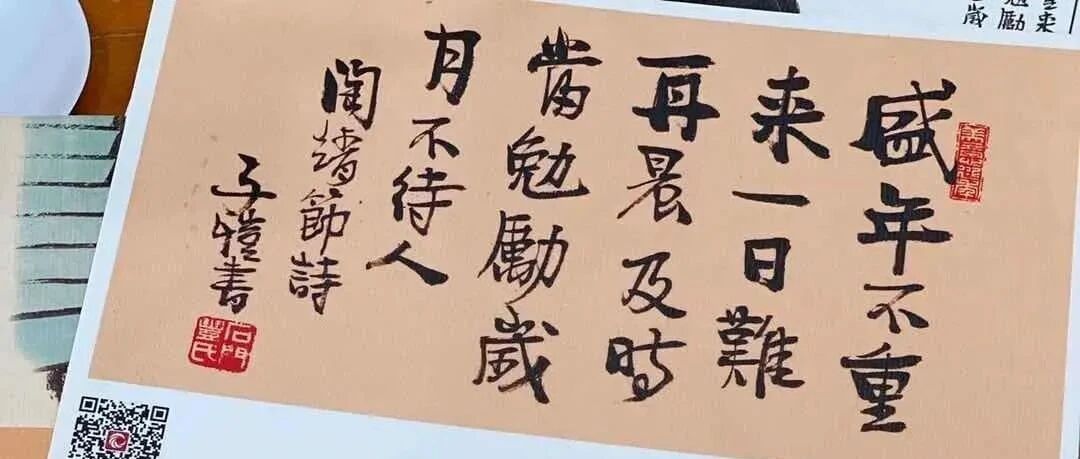 盛年不重
来一日難
再晨及時
當勉勵歲
月不待人
陶靖節詩
子愷書
石門豐氏